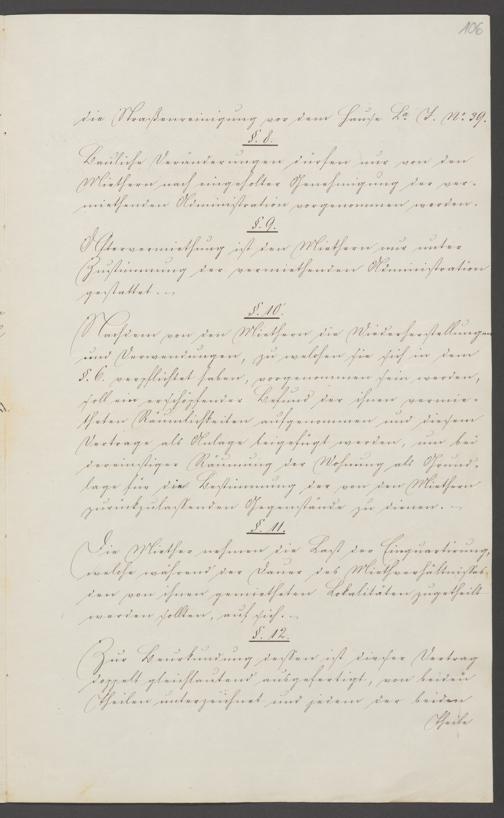 106
die Straßenreinigung vor dem Hause La J. No. 39.
§. 8.
Bauliche Veränderungen dürfen nur von den
Miethern nach eingeholter Genehmigung der ver-
miethenden Administration vorgenommen werden.
§. 9.
Aftervermiethung ist den Miethern nur unter
Zustimmung der vermiethenden Administration
gestattet.
§. 10.
Nachdem von den Miethern die Wiederherstellungen
und Verwendungen, zu welchen sie sich in dem
§. 6. verpflichtet haben, vorgenommen sein werden,
soll ein erschöpfender Befund der ihnen vermie-
theten Räumlichkeiten aufgenommen und diesem
Vertrage als Anlage beigefügt werden, um bei
dereinstiger Räumung der Wohnung als Grund-
lage für die Bestimmung der von den Miethern
zurückzulassenden Gegenstände zu dienen.
§. 11.
Die Miether nehmen die Last der Einquartierung,
welche während der Dauer des Miethverhältnisses
den von ihnen gemietheten Lokalitäten zugetheilt
werden sollten, auf sich.
§. 12.
Zur Beurkundung dessen ist dieser Vertrag
doppelt gleichlautend ausgefertigt, von beiden
Theilen unterzeichnet und jedem der beiden
Theile